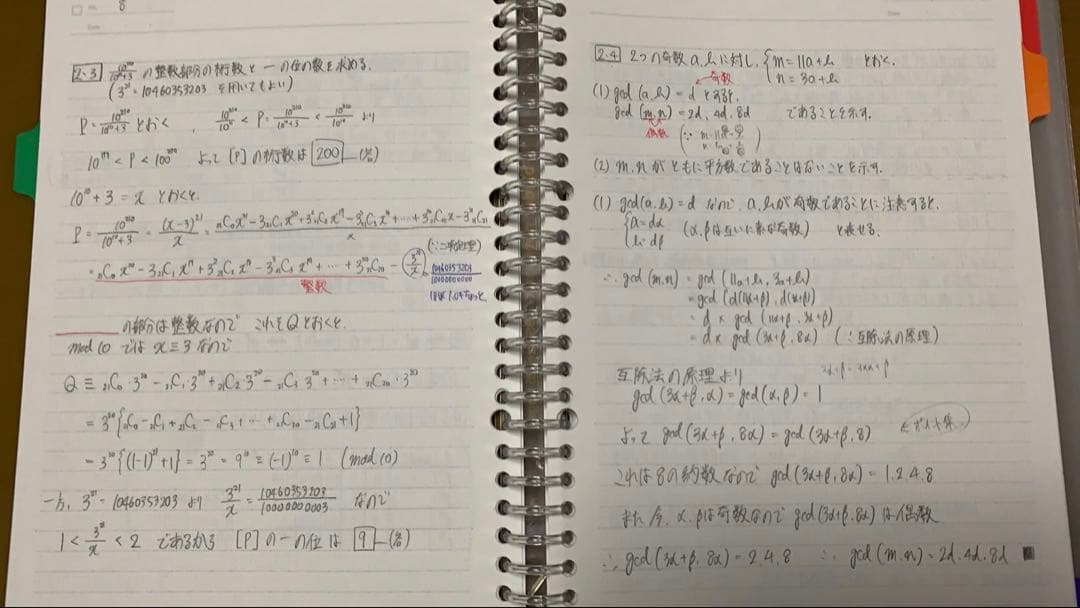 No. 8
Date
2.3 10^210/(10^10+3) の整数部分の桁数と 一の位の数を求める.
(3^21=10460353203 を用いてもよい)
P=10^210/(10^10+3) とおく, 10^210/10^11 < P=10^210/(10^10+3) < 10^210/10^10 より
10^199 < P < 10^200 よって [P]の桁数は 200 (答)
10^10+3=x とおくと.
P=10^210/(10^10+3)=(x-3)^21/x=
(∵二項定理)
整数
3^21/x
10460353203/10000000000
ほぼ1.04ちょっと.
の部分は整数なので これをQとおくと.
mod 10 では x≡3 なので
Q≡21C0・3^20-21C1・3^20+21C2 3^20-21C3 3^20+…+21C20・3^20
=3^20{21C0-21C1+21C2-21C3+…+21C20-21C21+1}
=3^20{(1-1)^21+1}=3^20=9^10≡(-1)^10≡1 (mod 10)
一方, 3^21=10460353203 より 3^21/x=10460353203/10000000003 なので
1<3^21/x<2 であるから [P]の一の位は 9 (答)
2.4 2つの奇数a,bに対し, {m=11a+b n=3a+b とおく.
奇数
(1) gcd(a,b)=d とすると,
gcd(m,n)=2d,4d,8d であることを示す.
偶数
(2) m,nがともに平方数であることはないことを示す.
(1) gcd(a,b)=d なので, a,bが奇数であることに注意すると,
{a=dα b=dβ (α,βは互いに素な奇数) と表せる.
∴gcd(m,n)=gcd(11a+b,3a+b)
=gcd(d(11α+β),d(3α+β))
=d×gcd(11α+β,3α+β)
=d×gcd(3α+β,8α) (∵互除法の原理)
互除法の原理より
gcd(3α+β,α)=gcd(α,β)=1
よって gcd(3α+β,8α)=gcd(3α+β,8)
これは8の約数なので gcd(3α+β,8α)=1,2,4,8
また今, α,βは奇数なので gcd(3α+β,8α)は偶数
∴gcd(3α+β,8α)=2,4,8 ∴gcd(m,n)=2d,4d,8d ■